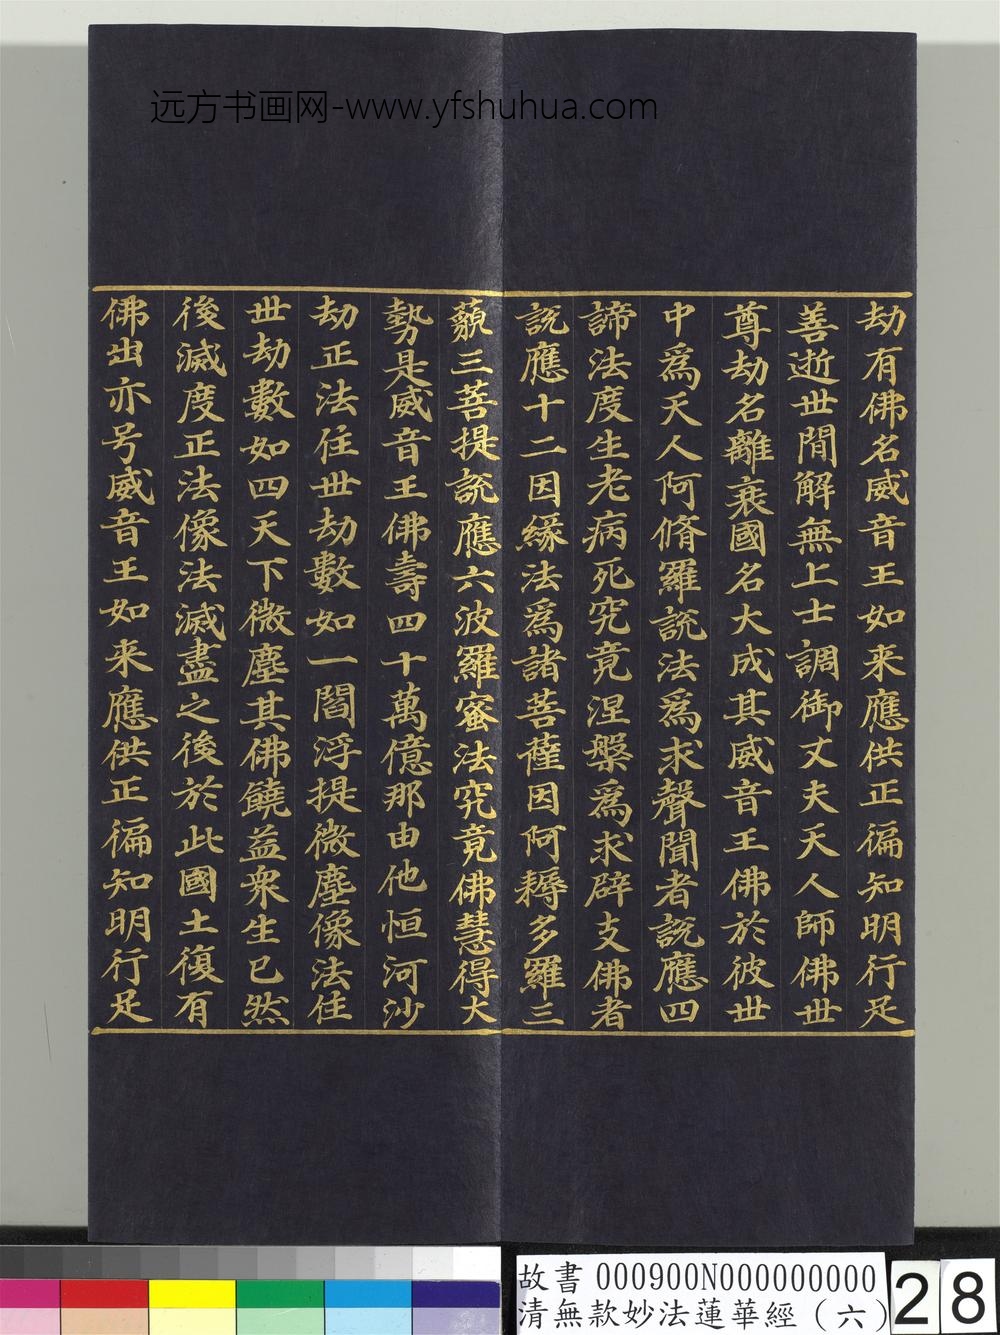 远方书画网-www.yfshuhua.com
劫有佛名威音王如来應供正徧知明行足
善逝世間解無上士調御丈夫天人師佛世
尊劫名離衰國名大成其威音王佛於彼世
中爲天人阿脩羅說法爲求聲聞者說應四
諦法度生老病死究竟涅槃爲求辟支佛者
說應十二因緣法爲諸菩薩因阿耨多羅三
藐三菩提說應六波羅蜜法究竟佛慧得大
勢是威音王佛壽四十萬億那由他恒河沙
劫正法住世劫數如一閻浮提微塵像法住
世劫數如四天下微塵其佛饒益衆生已然
後滅度正法像法滅盡之後於此國土復有
佛出亦号威音王如来應供正徧知明行足
故書 000900N000000000
清無款妙法蓮華經（六）
28